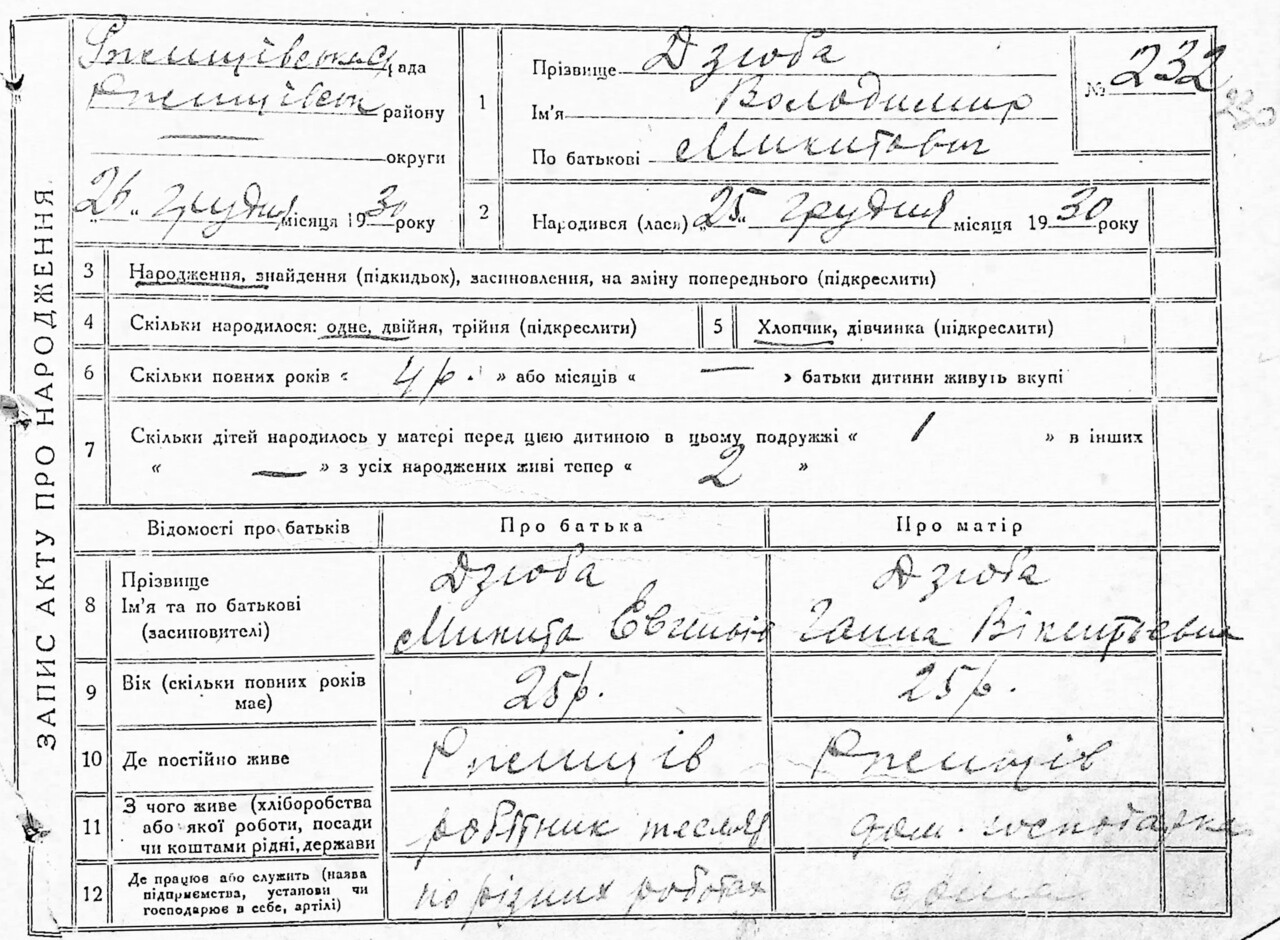 ЗАПИС АКТУ ПРО НАРОДЖЕННЯ
Ржищівська рада
Ржищівськ району
округи
"26" грудня місяця 1930 року
1
Прізвище Дзюба
Ім'я Володимир
По батькові Микитович
№ 232
230
2
Народився (лась) "25" грудня місяця 1930 року
3 Народження, знайдення (підкидьок), засиновлення, на зміну попереднього (підкреслити)
4 Скільки народилося: одне, двійня, трійня (підкреслити)
5 Хлопчик, дівчинка (підкреслити)
6 Скільки повних років « 4 р. » або місяців « — » батьки дитини живуть вкупі
7 Скільки дітей народилось у матері перед цією дитиною в цьому подружжі « 1 » в інших
« — » з усіх народжених живі тепер « 2 »
Відомості про батьків Про батька Про матір
8 Прізвище
Ім'я та по батькові
(засиновителі)
Дзюба
Микита
Дзюба
Ганна Вікентьевна
9 Вік (скільки повних років
має)
25 р. 25 р.
10 Де постійно живе Ржищів Ржищів
11 З чого живе (хліборобства
або якої роботи, посади
чи коштами рідні, держави
робітник тесляр дом. господарка
12 Де працює або служить (наява
підприємства, установи чи
господарює в себе, артілі)
по різних роботах дома